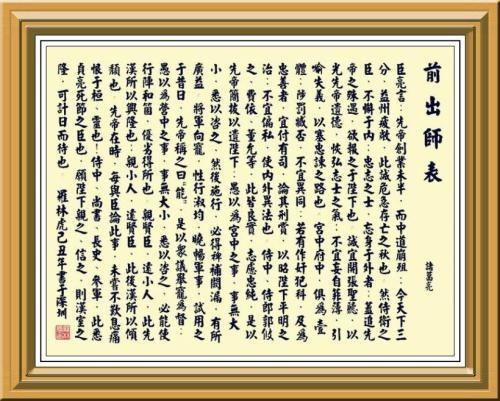 前出師表
諸葛亮
臣亮言：先帝創業未半，而中道崩殂；今天下三
分，益州疲敝，此誠危急存亡之秋也。然侍衛之
臣，不懈于內；忠志之士，忘身于外者：蓋追先
帝之殊遇，欲報之于陛下也。誠宜開張聖聽，以
光先帝遺德，恢弘志士之氣；不宜妄自菲薄，引
喻失義，以塞忠諫之路也。宮中府中，俱為壹
體；陟罰臧否，不宜異同：若有作奸犯科，及為
忠善者，宜付有司，論其刑賞，以昭陛下平明之
治；不宜偏私，使內外異法也。侍中、侍郎郭攸
之、費依、董允等，此皆良實，志慮忠純，是以
先帝簡拔以遺陛下：愚以為宮中之事，事無大
小，悉以咨之，然後施行，必得裨補闕漏，有所
廣益。將軍向寵，性行淑均，曉暢軍事，試用之
于昔日，先帝稱之曰“能”，是以眾議舉寵為督：
愚以為營中之事，事無大小，悉以咨之，必能使
行陣和笛，優劣得所也。親賢臣，遠小人，此先
漢所以興隆也；親小人，遠賢臣，此後漢所以傾
頹也。先帝在時，每與臣論此事，未嘗不歎息痛
恨于桓、靈也！侍中、尚書、長史、參軍，此悉
貞亮死節之臣也，願陛下親之、信之，則漢室之
隆，可計日而待也。 羅林虎己丑年書于深圳